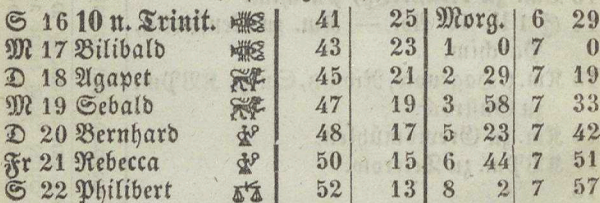 S 16 10 n. Trinit. 41 25 Morg. 6 29
M 17 Bilibald 43 23 1 0 7 0
D 18 Agapet 45 21 2 29 7 19
M 19 Sebald 47 19 3 58 7 33
D 20 Bernhard 48 17 5 23 7 42
Fr 21 Rebecca 50 15 6 44 7 51
S 22 Philibert 52 13 8 2 7 57